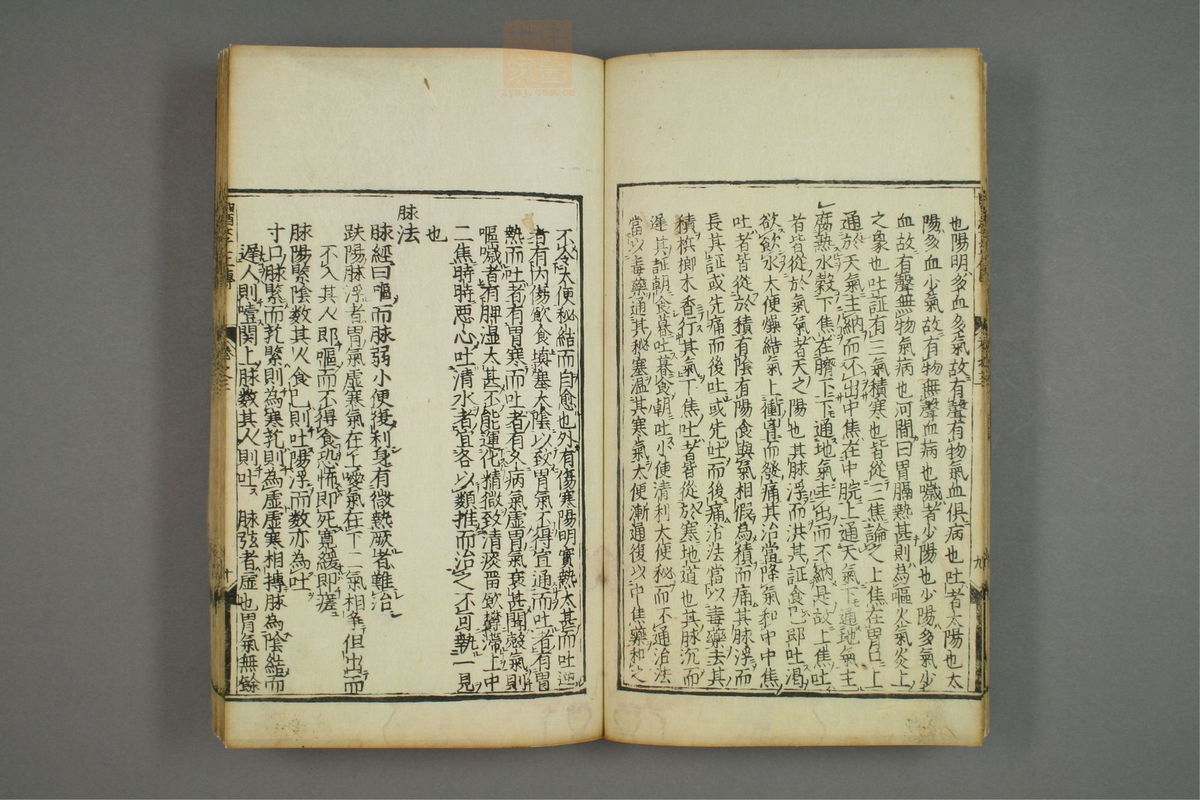 也陽明多血多氣故有聲有物氣血俱病也吐者太陽也太
陽多血少氣故有物無聲血病也噦者少陽也少陽多氣少
血故有聲無物氣病也河間曰胃膈熱甚則為嘔火氣炎上
之象也吐証有三氣積寒也皆從三焦論之上焦在胃口上
通於天氣主納而不出中焦在中脘上通天氣下通地氣主
腐熟水穀下焦在臍下下通地氣主出而不納是故上焦吐
者皆從於氣氣者天之陽也其脉浮而洪其証食已即吐渴
欲飲水大便燥結氣上衝胷而發痛其治當降氣和中中焦
吐者皆從於積有陰有陽食與氣相假為積而痛其脉浮而
長其証或先痛而後吐或先吐而後痛治法當以毒藥去其
積檳榔木香行其氣下焦吐者皆從於寒地道也其脉沉而
遲其証朝食暮吐暮食朝吐小便清利大便秘而不通治法
當以毒藥通其秘塞温其寒氣大便漸通復以中焦藥和之
不令大便秘結而自愈也外有傷寒陽明實熱太甚而吐逆
者有内傷飲食填塞太陰以致胃氣不得宣通而吐者有胃
熱而吐者有胃寒而吐者有久病氣虛胃氣衰甚聞穀氣則
嘔噦者有脾湿太甚不能運化精微致清痰留飲欝滯上中
二焦時時惡心吐清水者宜各以類推而治之不可執一見
也
脉法
脉經曰嘔而脉弱小便復利身有微熱厥者難治
趺陽脉浮者胃氣虛寒氣在上噯氣在下二氣相争但出而
不入其人即嘔而不得食恐怖即死寬緩即瘥
脉陽緊陰数其人食已則吐陽浮而数亦為吐
寸口脉緊而芤緊則為寒芤則為虛虛寒相摶脉為陰結而
遲人則噎関上脉数其人則吐 脉弦者虛也胃氣無餘